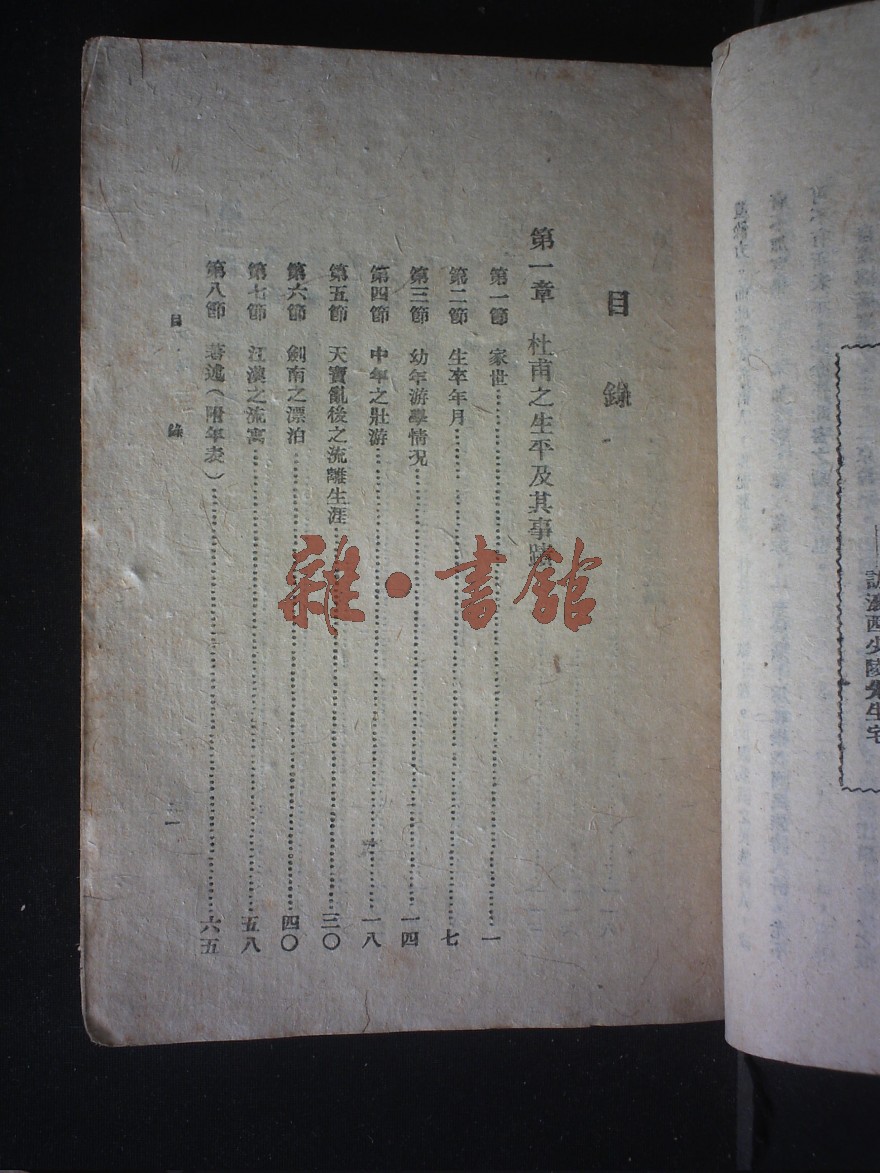 訪瀼西少陵先生宅
目錄
第一章 杜甫之生平及其事蹟
第一節 家世……一
第二節 生卒年月……七
第三節 幼年游學情況……一四
第四節 中年之壯游……一八
第五節 天寶亂後之流離生涯……三〇
第六節 劍南之漂泊……四〇
第七節 江漢之流寓……五八
第八節 著述(附年表)……六五
目錄 一
雜·書館